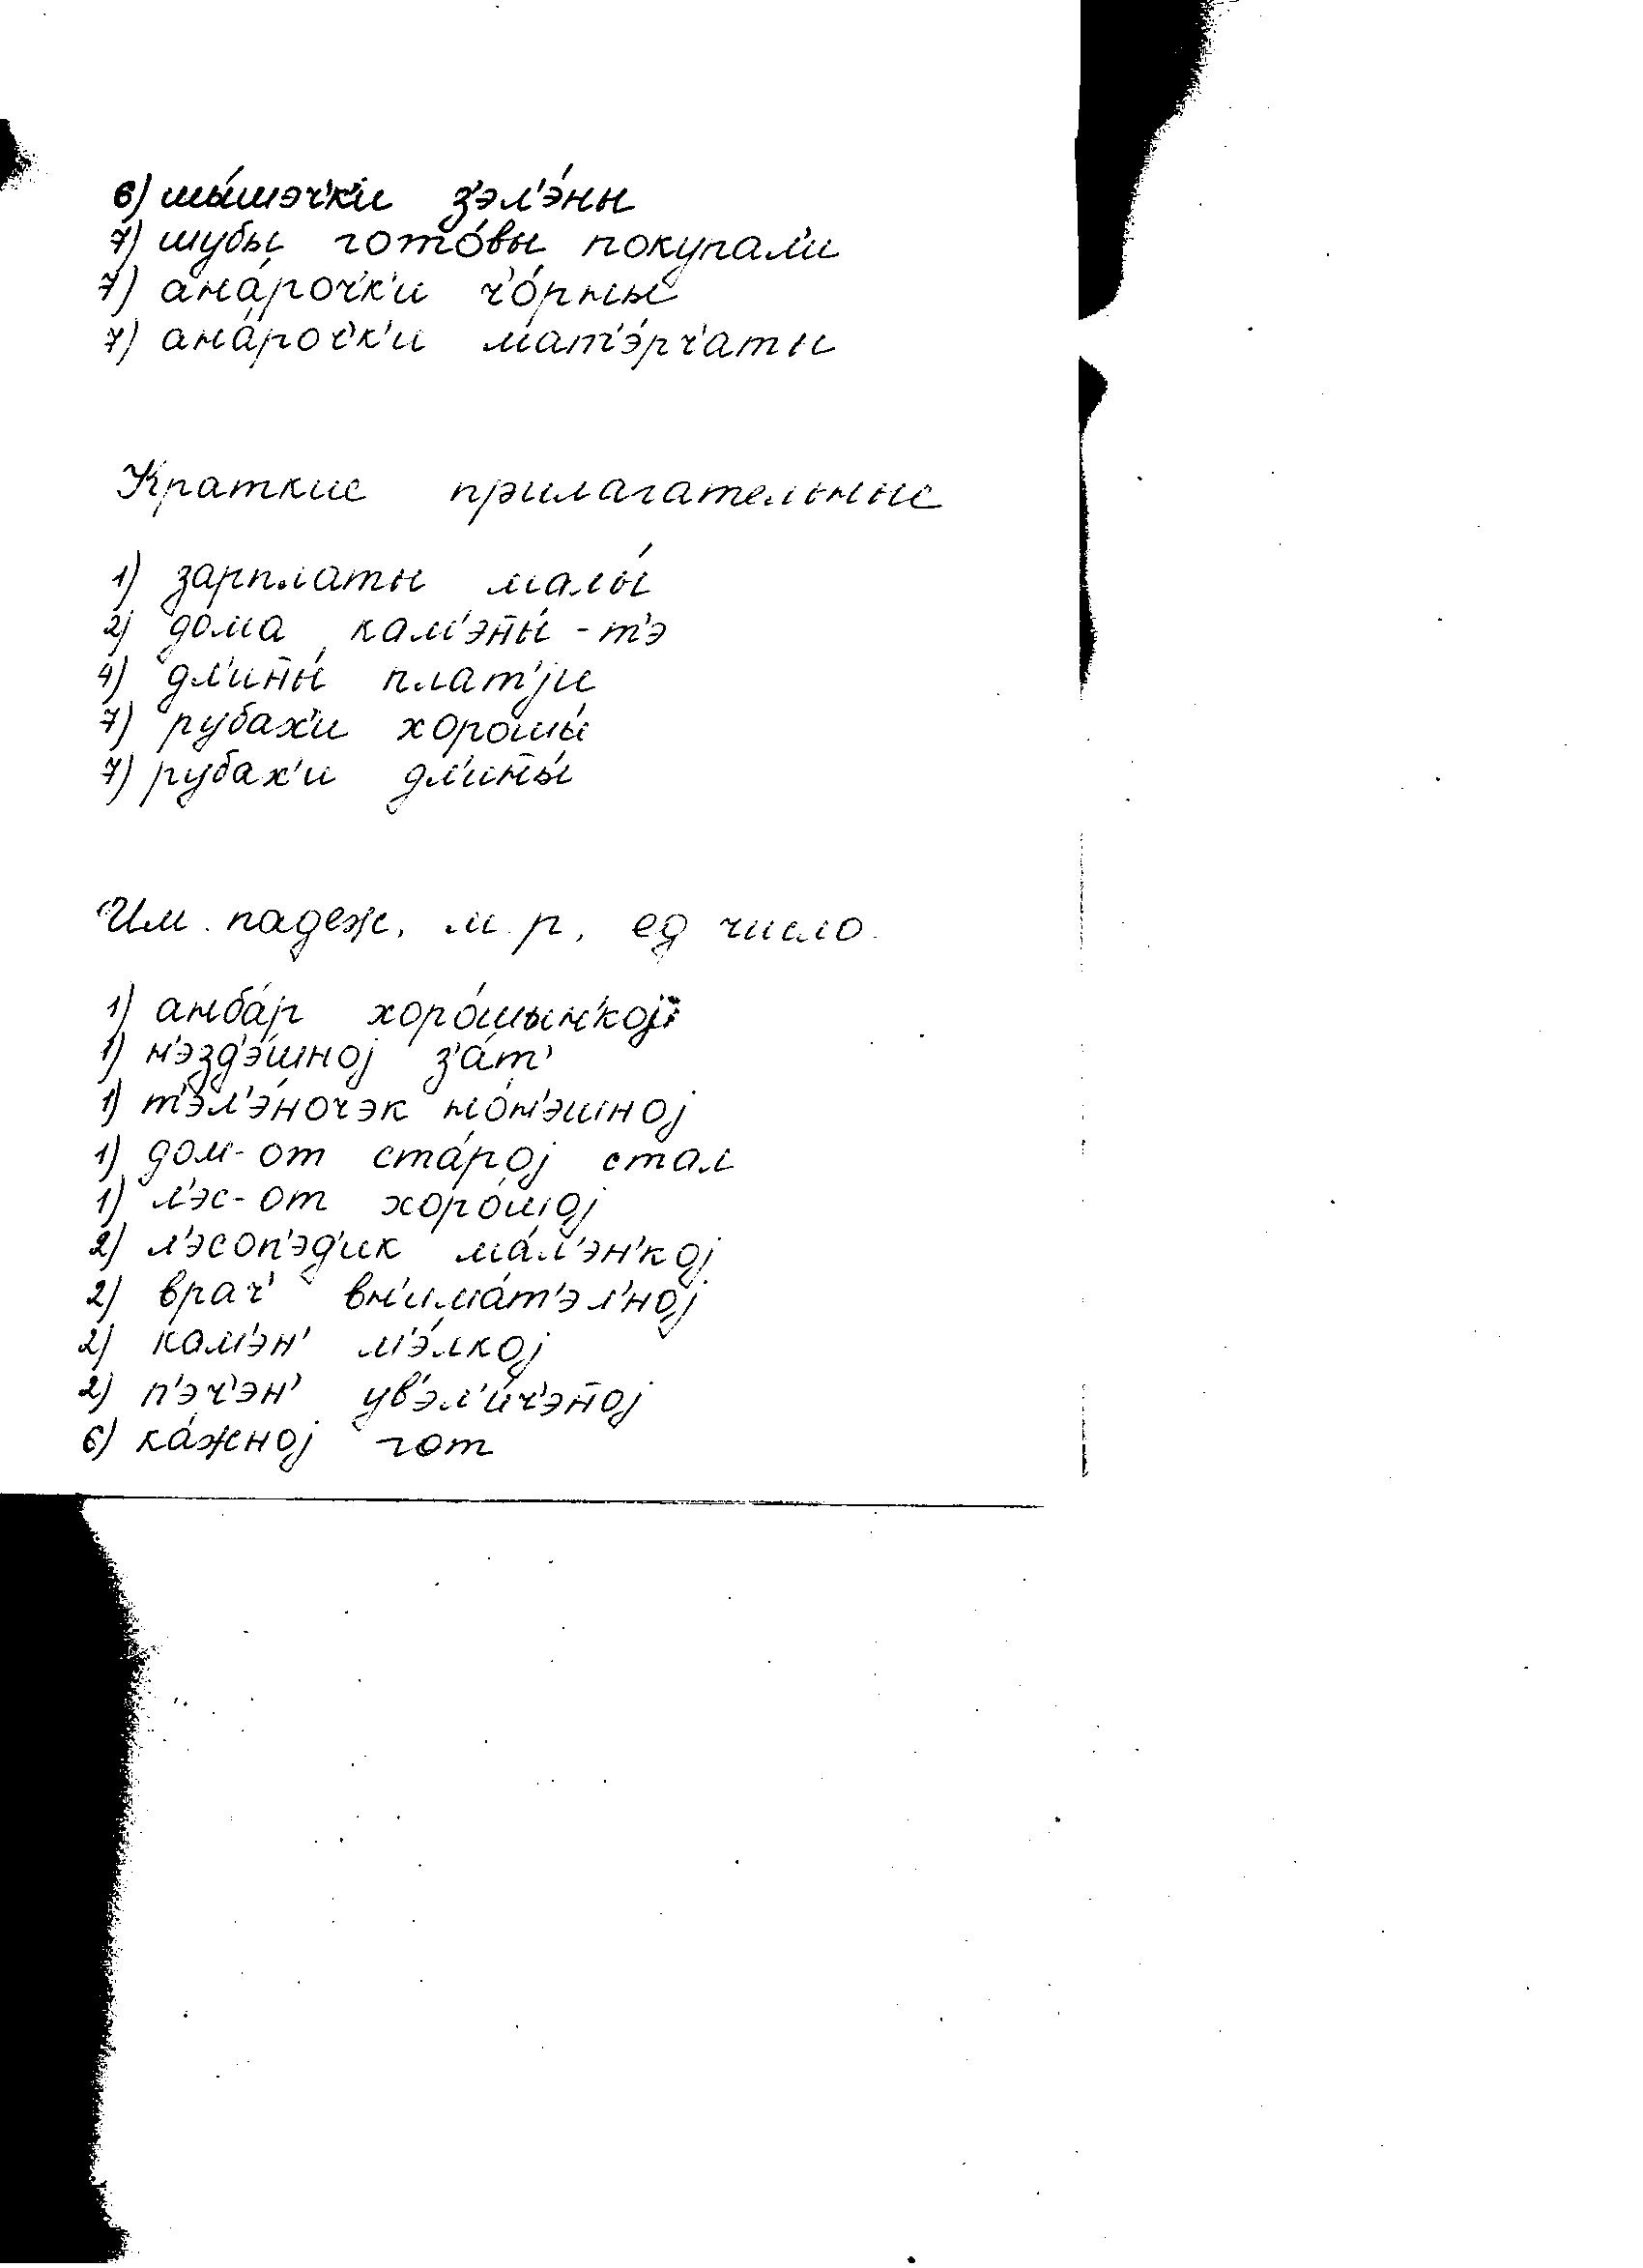 6) шы́шэч'к'и з'эл'э́ны
7) шубы гото́вы покупал'и
7) ана́роч'к'и ч'о́рны
7) ана́роч'к'и мат'э́рч'аты
Краткие прилагательные
1) зарплаты малы́
2) дома кам'эн̄ы́ - т'э
4) дл'ин̄ы́ плат'jи
7) рубах'и хорошы́
7) рубах'и дл'ин̄ы́
Им. падеж, м. р, ед число.
1) анба́р хоро́шын'кој
1) н'эзд'э́шној з'а́т'
1) т'эл'э́ночэк то́т'эшној
1) дом-от ста́рој стал
1) л'эс-от хоро́шој
2) л'эсоп'эд'ик ма́л'эн'кој
2) врач' вн'има́т'эл'ној
2) кам'эн' м'э́лкој
2) п'эч'эн' ув'эл'и́ч'эн̄ој
6) ка́жној гот